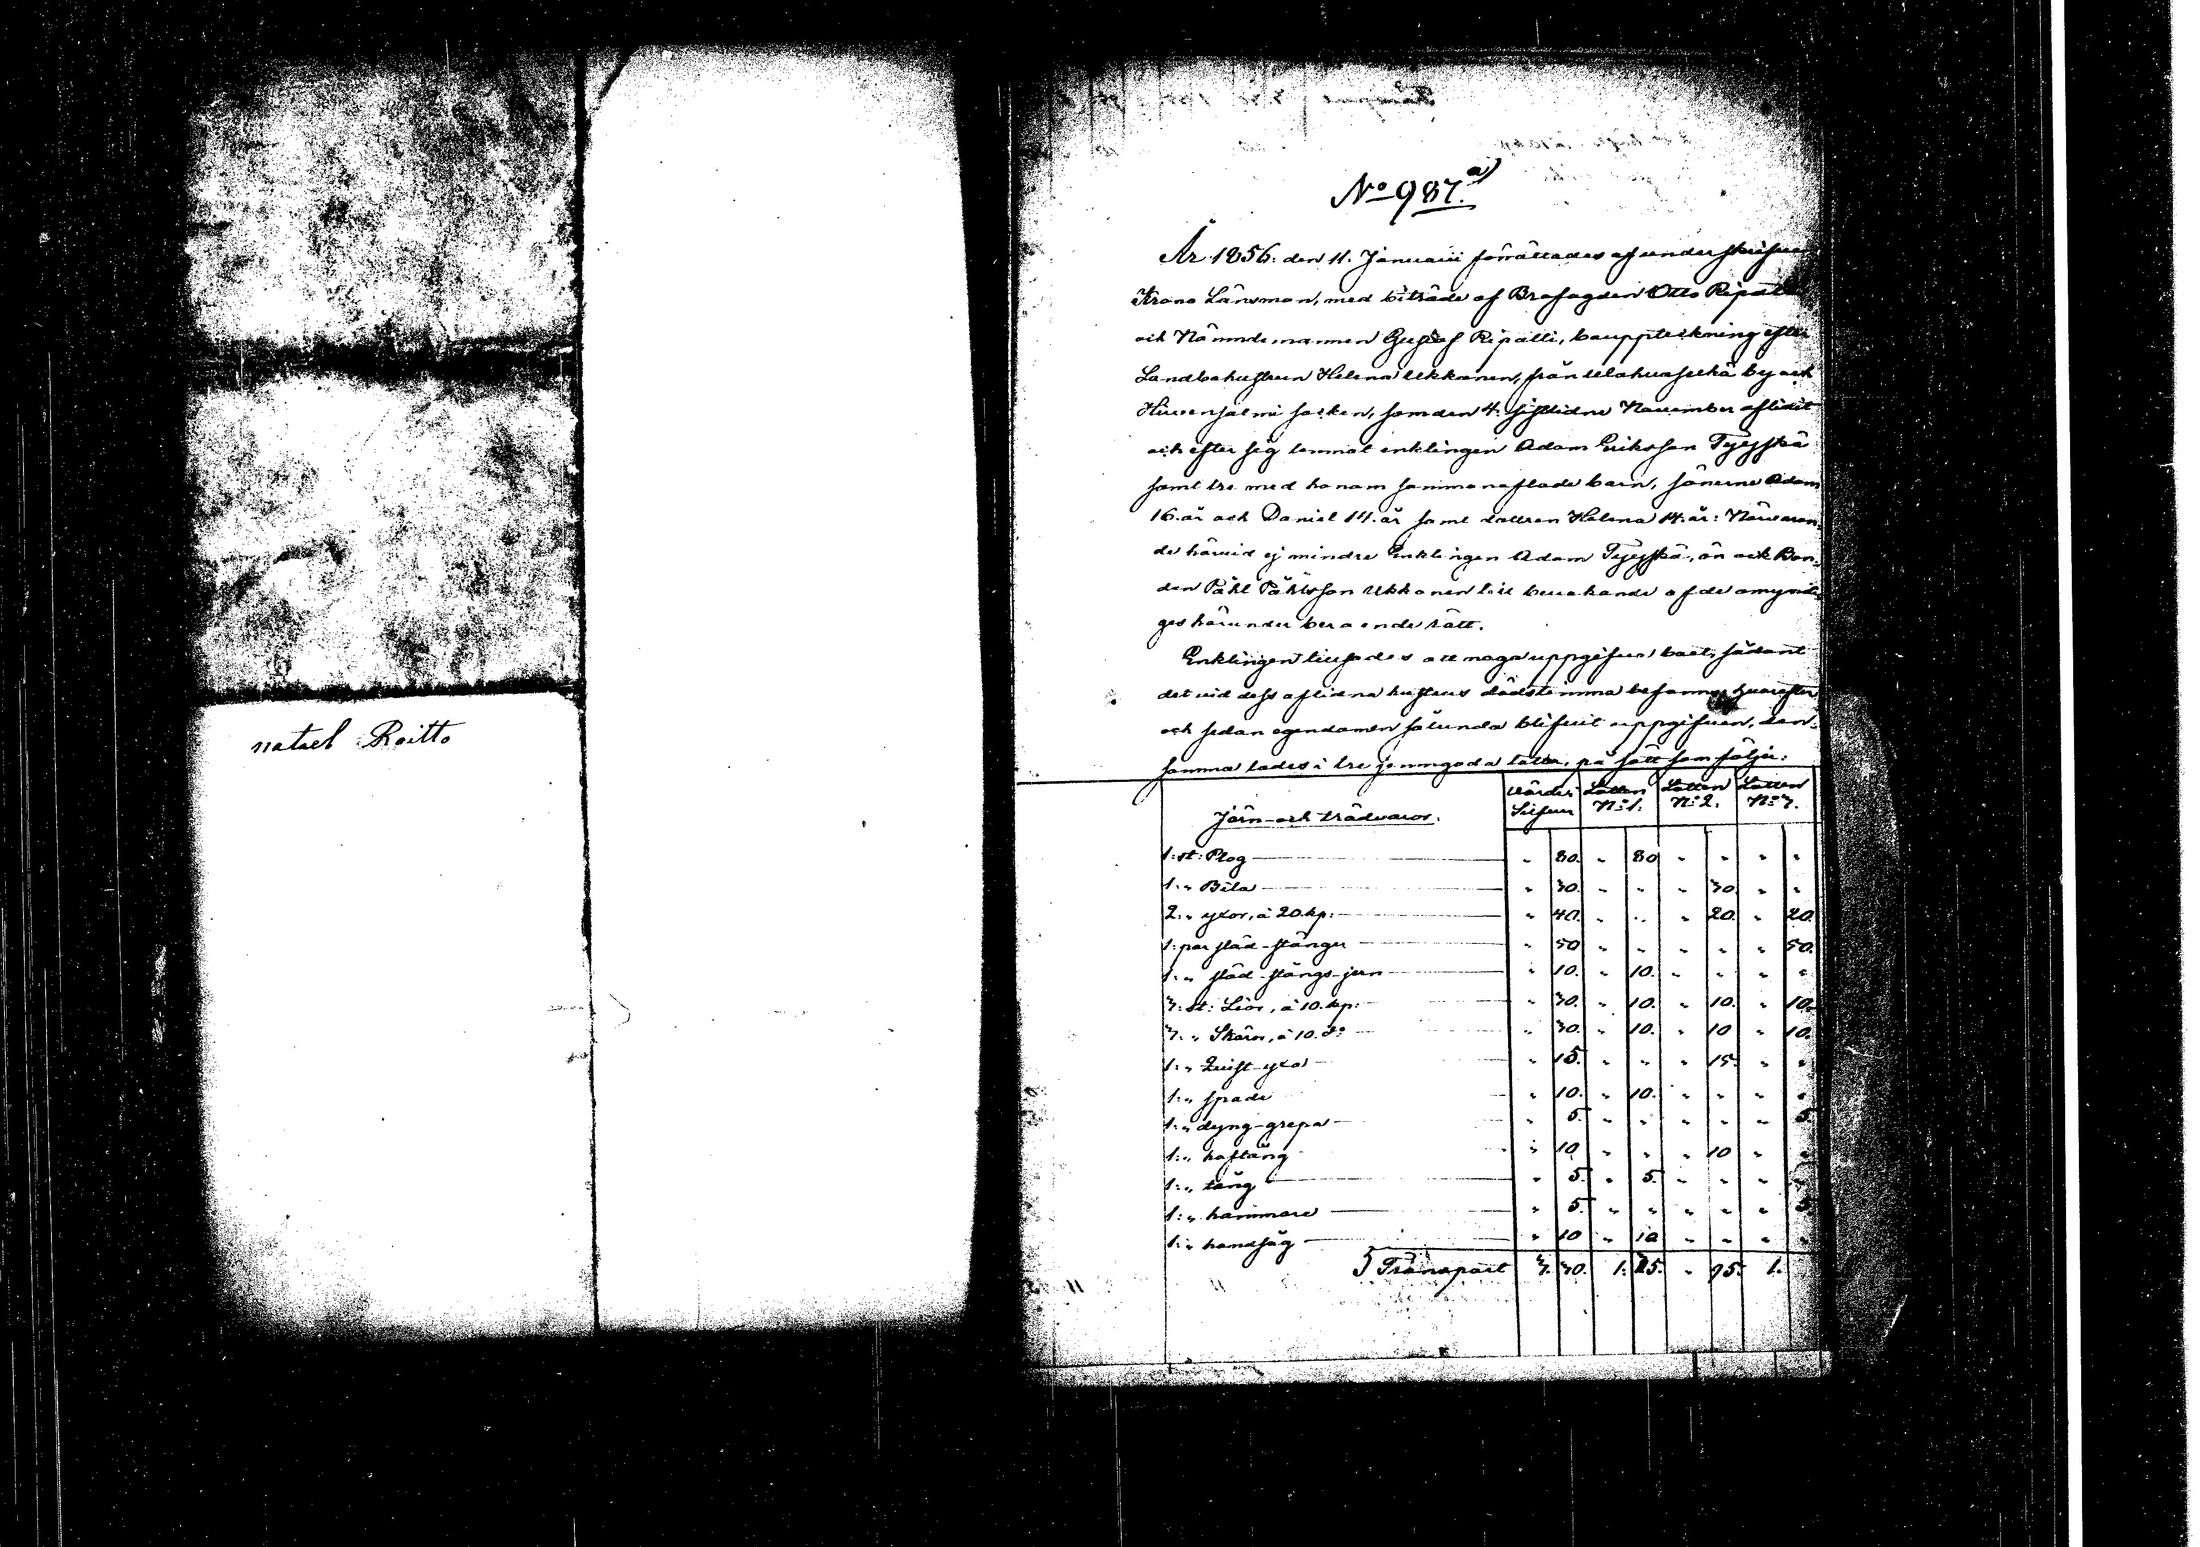 natael Roitto
No 987. a)
År 1856. den 11. Januarii förrättades af underskrifven
Krono Länsman, med biträde af Brofogden Otto Ripatti
och Nämndemannen Gustaf Ripatti, bouppteckning efter
Landbohustrun Helena Ukkonen, från by och
Hirvensalmi socken, som den 4. sistlidne November aflidit
och efter sig lemnat enklingen Adam Eriksson Tyyskä
samt tre med honom sammanaflade barn, sönerne Adam
16. år och Daniel 14. år samt dottren Helena 14. år: Närvaran-
de härvid ej mindre Enklingen Adam Tyyskä, än ock Bon-
den Påhl Påhlsson Ukkonen till bevakande af de omyndi-
ges härunder beroende rätt.
Enklingen tillsades att noga uppgifva boet, sådant
det vid dess aflidna hustrus dödstimma befanns hvarefter
och sedan egendomen sålunda blifvit uppgifven, den-
samma lades i tre jemngoda lotter, på sätt som följer:
Järn- och trädvaror. Värde: Silfver Lotten N:o 1. Lotten N:o 2. Lotten N:o 3.
1: st: Plog " 80. " 80 " " " "
1: " Bila " 30. " " " 30. " "
2: " yxor, à 20. kp: " 40. " " " 20. " 20.
1: par städ-stänger " 50 " " " " " 50.
1: " städ-stängs-jern " 10. " 10. " " " "
3: st: Liar, à 10. kp: " 30. " 10. " 10. " 10.
3: " Skäror, à 10. d:o " 30. " 10. " 10 " 10.
1: " Quist-yxa " 15. " " " 15. " "
1: " spade " 10. " 10. " " " "
1: " dyng-grepa " 5. " " " " " 5.
1: " hoftång " 10. " " " 10 " "
1: " tång " 5. " 5. " " " "
1: " hammare " 5. " " " " " 5
1: " handsåg " 10 " 10 " " " "
Transport 3. 30. 1. 25. " 95. 1.